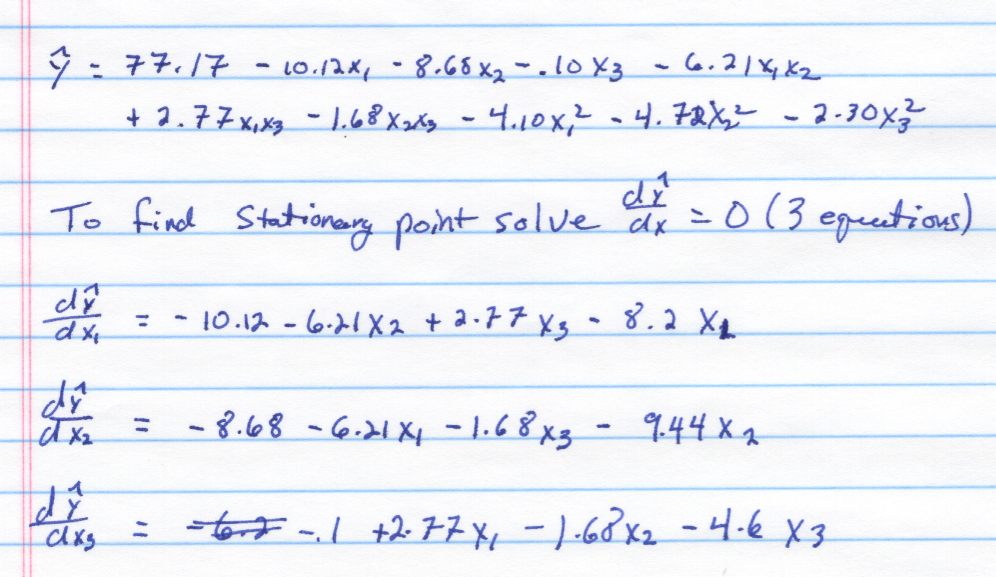 ŷ = 77.17 - 10.12x₁ - 8.68x₂ - .10x₃ - 6.21x₁x₂
+ 2.77x₁x₃ - 1.68x₂x₃ - 4.10x₁² - 4.72x₂² - 2.30x₃²
To find Stationary point solve dŷ/dx = 0 (3 equations)
dŷ/dx₁ = - 10.12 - 6.21x₂ + 2.77x₃ - 8.2x₁
dŷ/dx₂ = - 8.68 - 6.21x₁ - 1.68x₃ - 9.44x₂
dŷ/dx₃ = -6.2 -.1 +2.77x₁ - 1.68x₂ - 4.6x₃